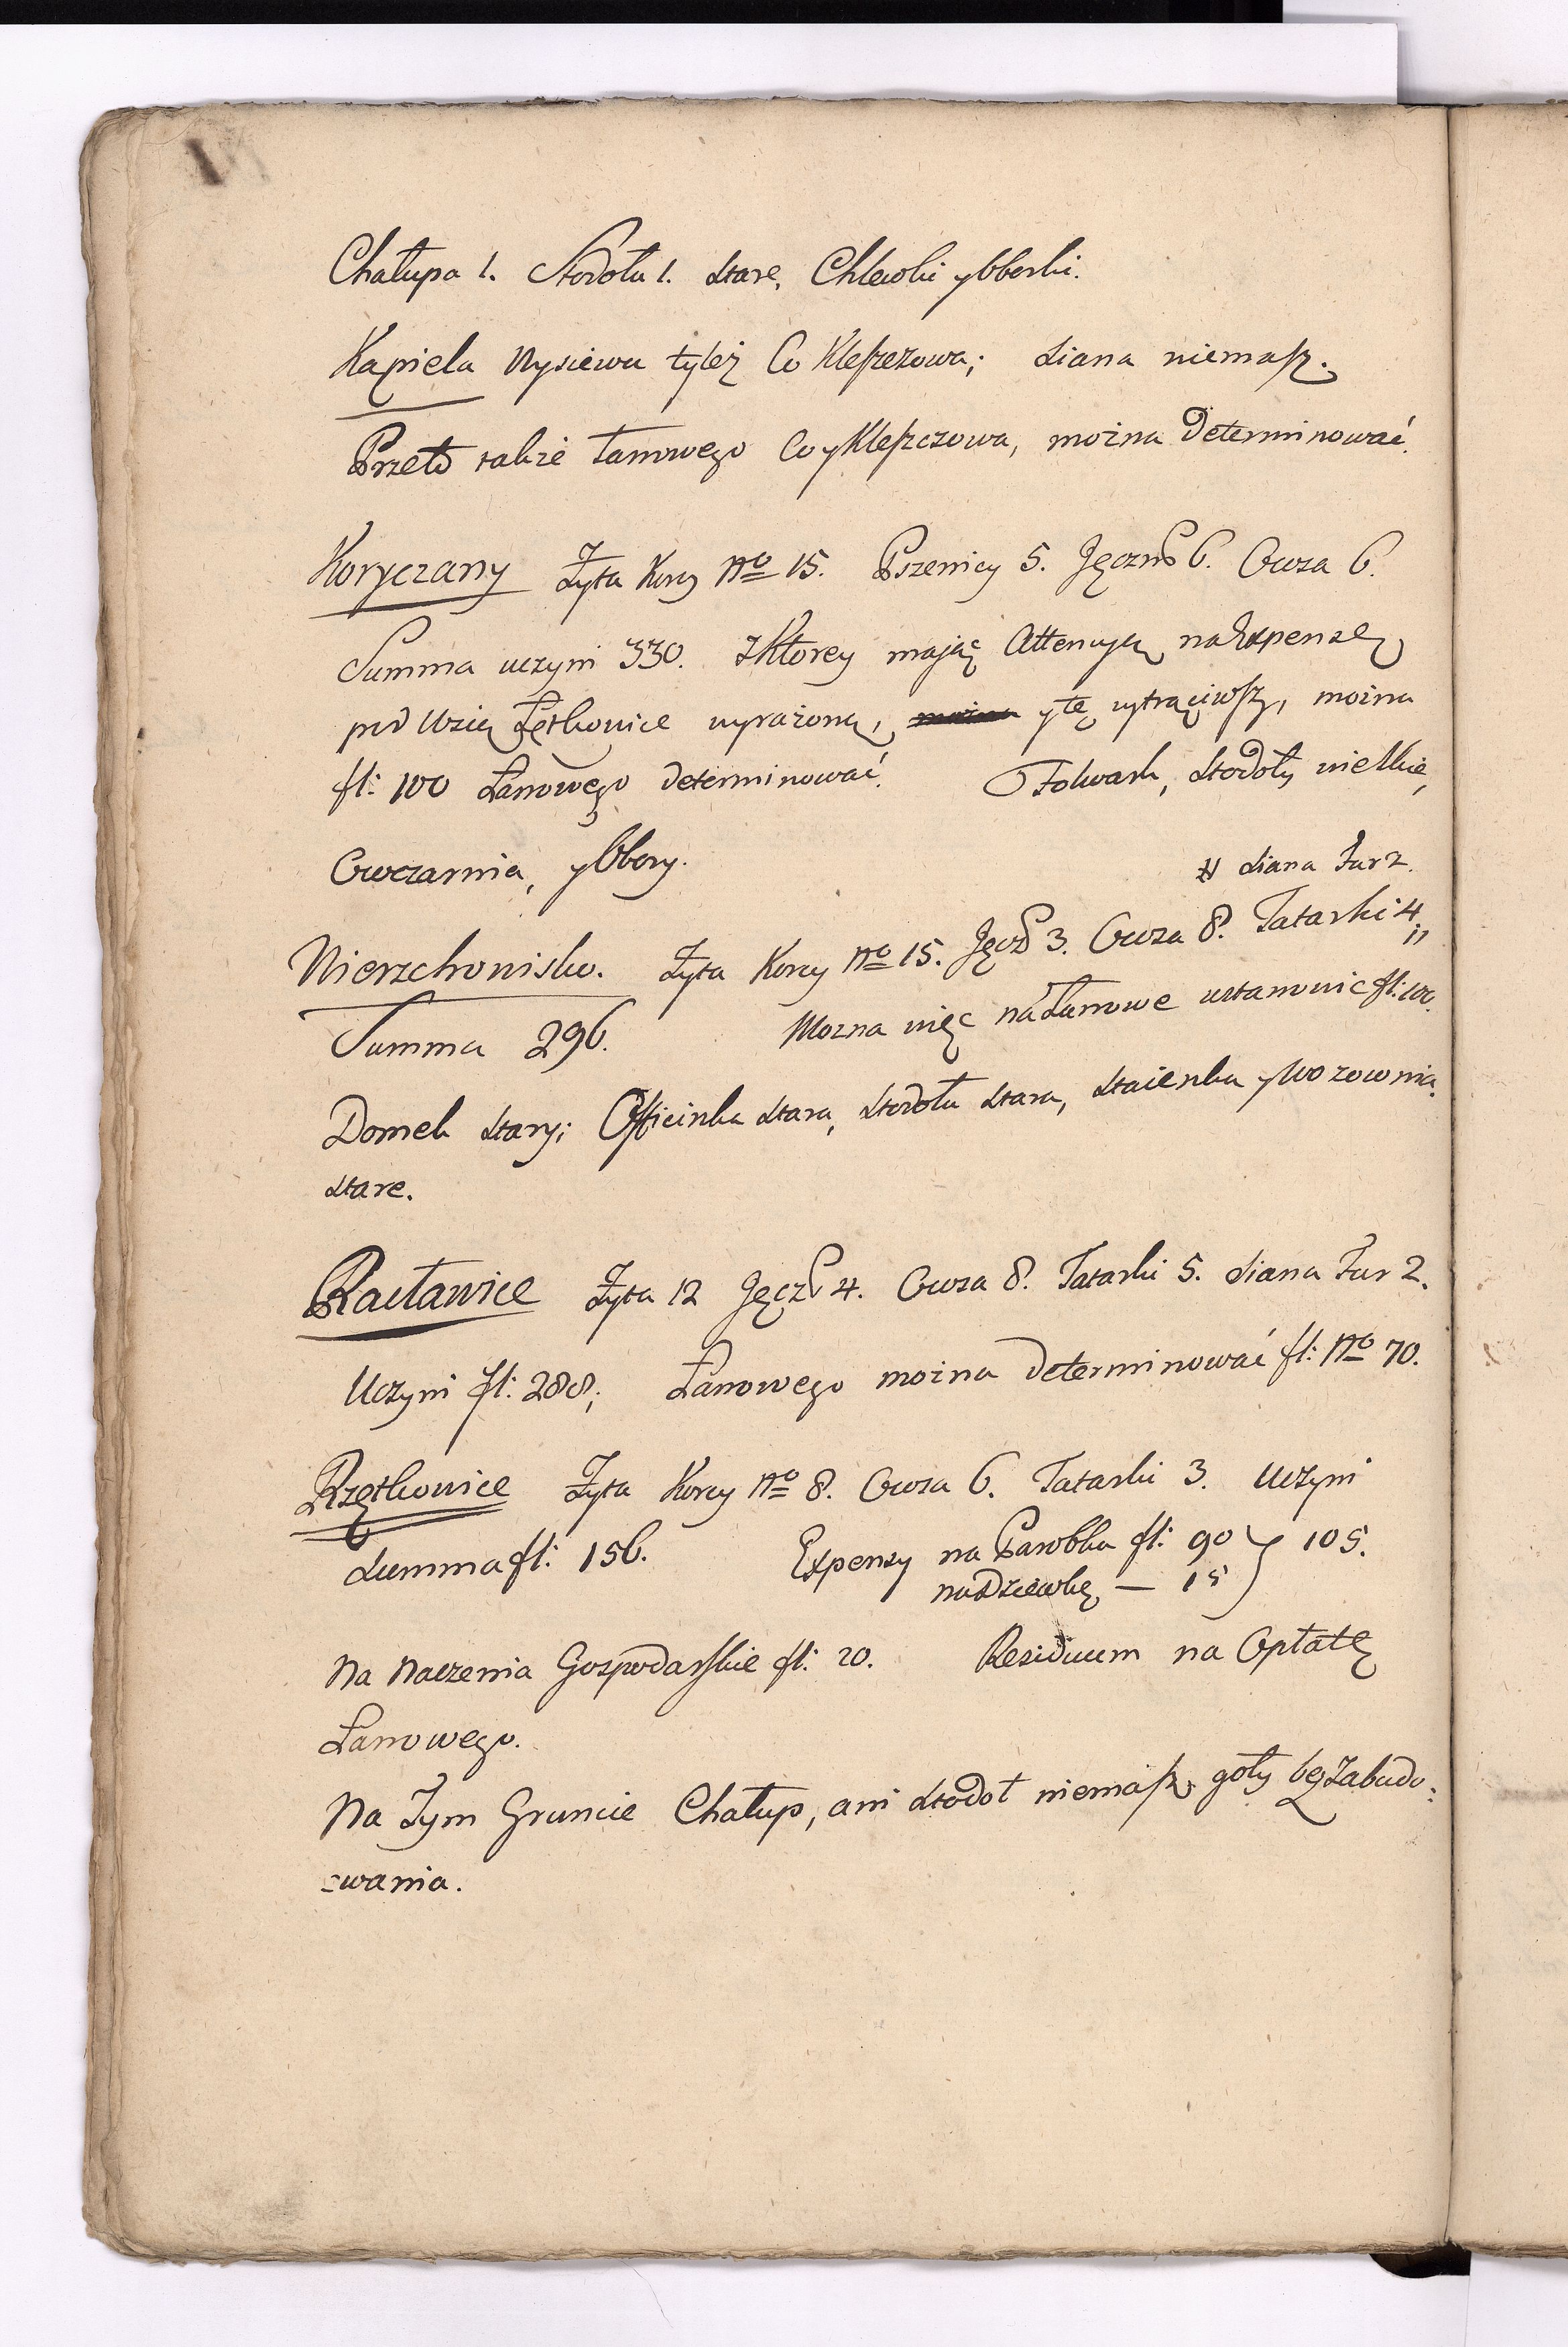 Chałupa 1. Stodoła 1. stare, Chlewki y Oborki.
Kąpiela Wysiewu tyleż Co Klepczowa; siana niemasz.
Przeto także łanowego Co y Klepczowa, można determinować.
Koryczany Żyta Korcy No 15. Pszenicy 5. Jęczm 6. Owsa 6.
Summa uczyni 330. z Ktorey maiąc Attencyą na Expensę
pod Wsią Łętkowice wyrażoną, y tę wytrąciwszy, można
fl: 100 Łanowego determinować. Folwark, stodoły wielkie,
Owczarnia, y Obory.
siana Fur 2.
Wierzchowisko. Żyta Korcy No 15. Jęcz 3. Owsa 8. Tatarki 4.
Summa 296. Mozna więc na Łanowe ustanowic fl: 100.
Domek stary; Officinka stara, stodoła stara, staienka y Wozownia
stare.
Racławice Żyta 12 Jęcz 4. Owsa 8. Tatarki 5. siana Fur 2.
Uczyni fl: 288; Łanowego można determinować fl: No 70.
Rzętkowice Żyta Korcy No 8. Owsa 6. Tatarki 3. Uczyni
summa fl: 156. Expensy na Parobka fl: 90 } 105.
na Dziewkę — 15
Na Naczenia Gospodarskie fl: 20. Residuum na Opłatę
Łanowego.
Na Tym Gruncie Chałup, ani stodoł niemasz, goły bez Zabudo:
:wania.